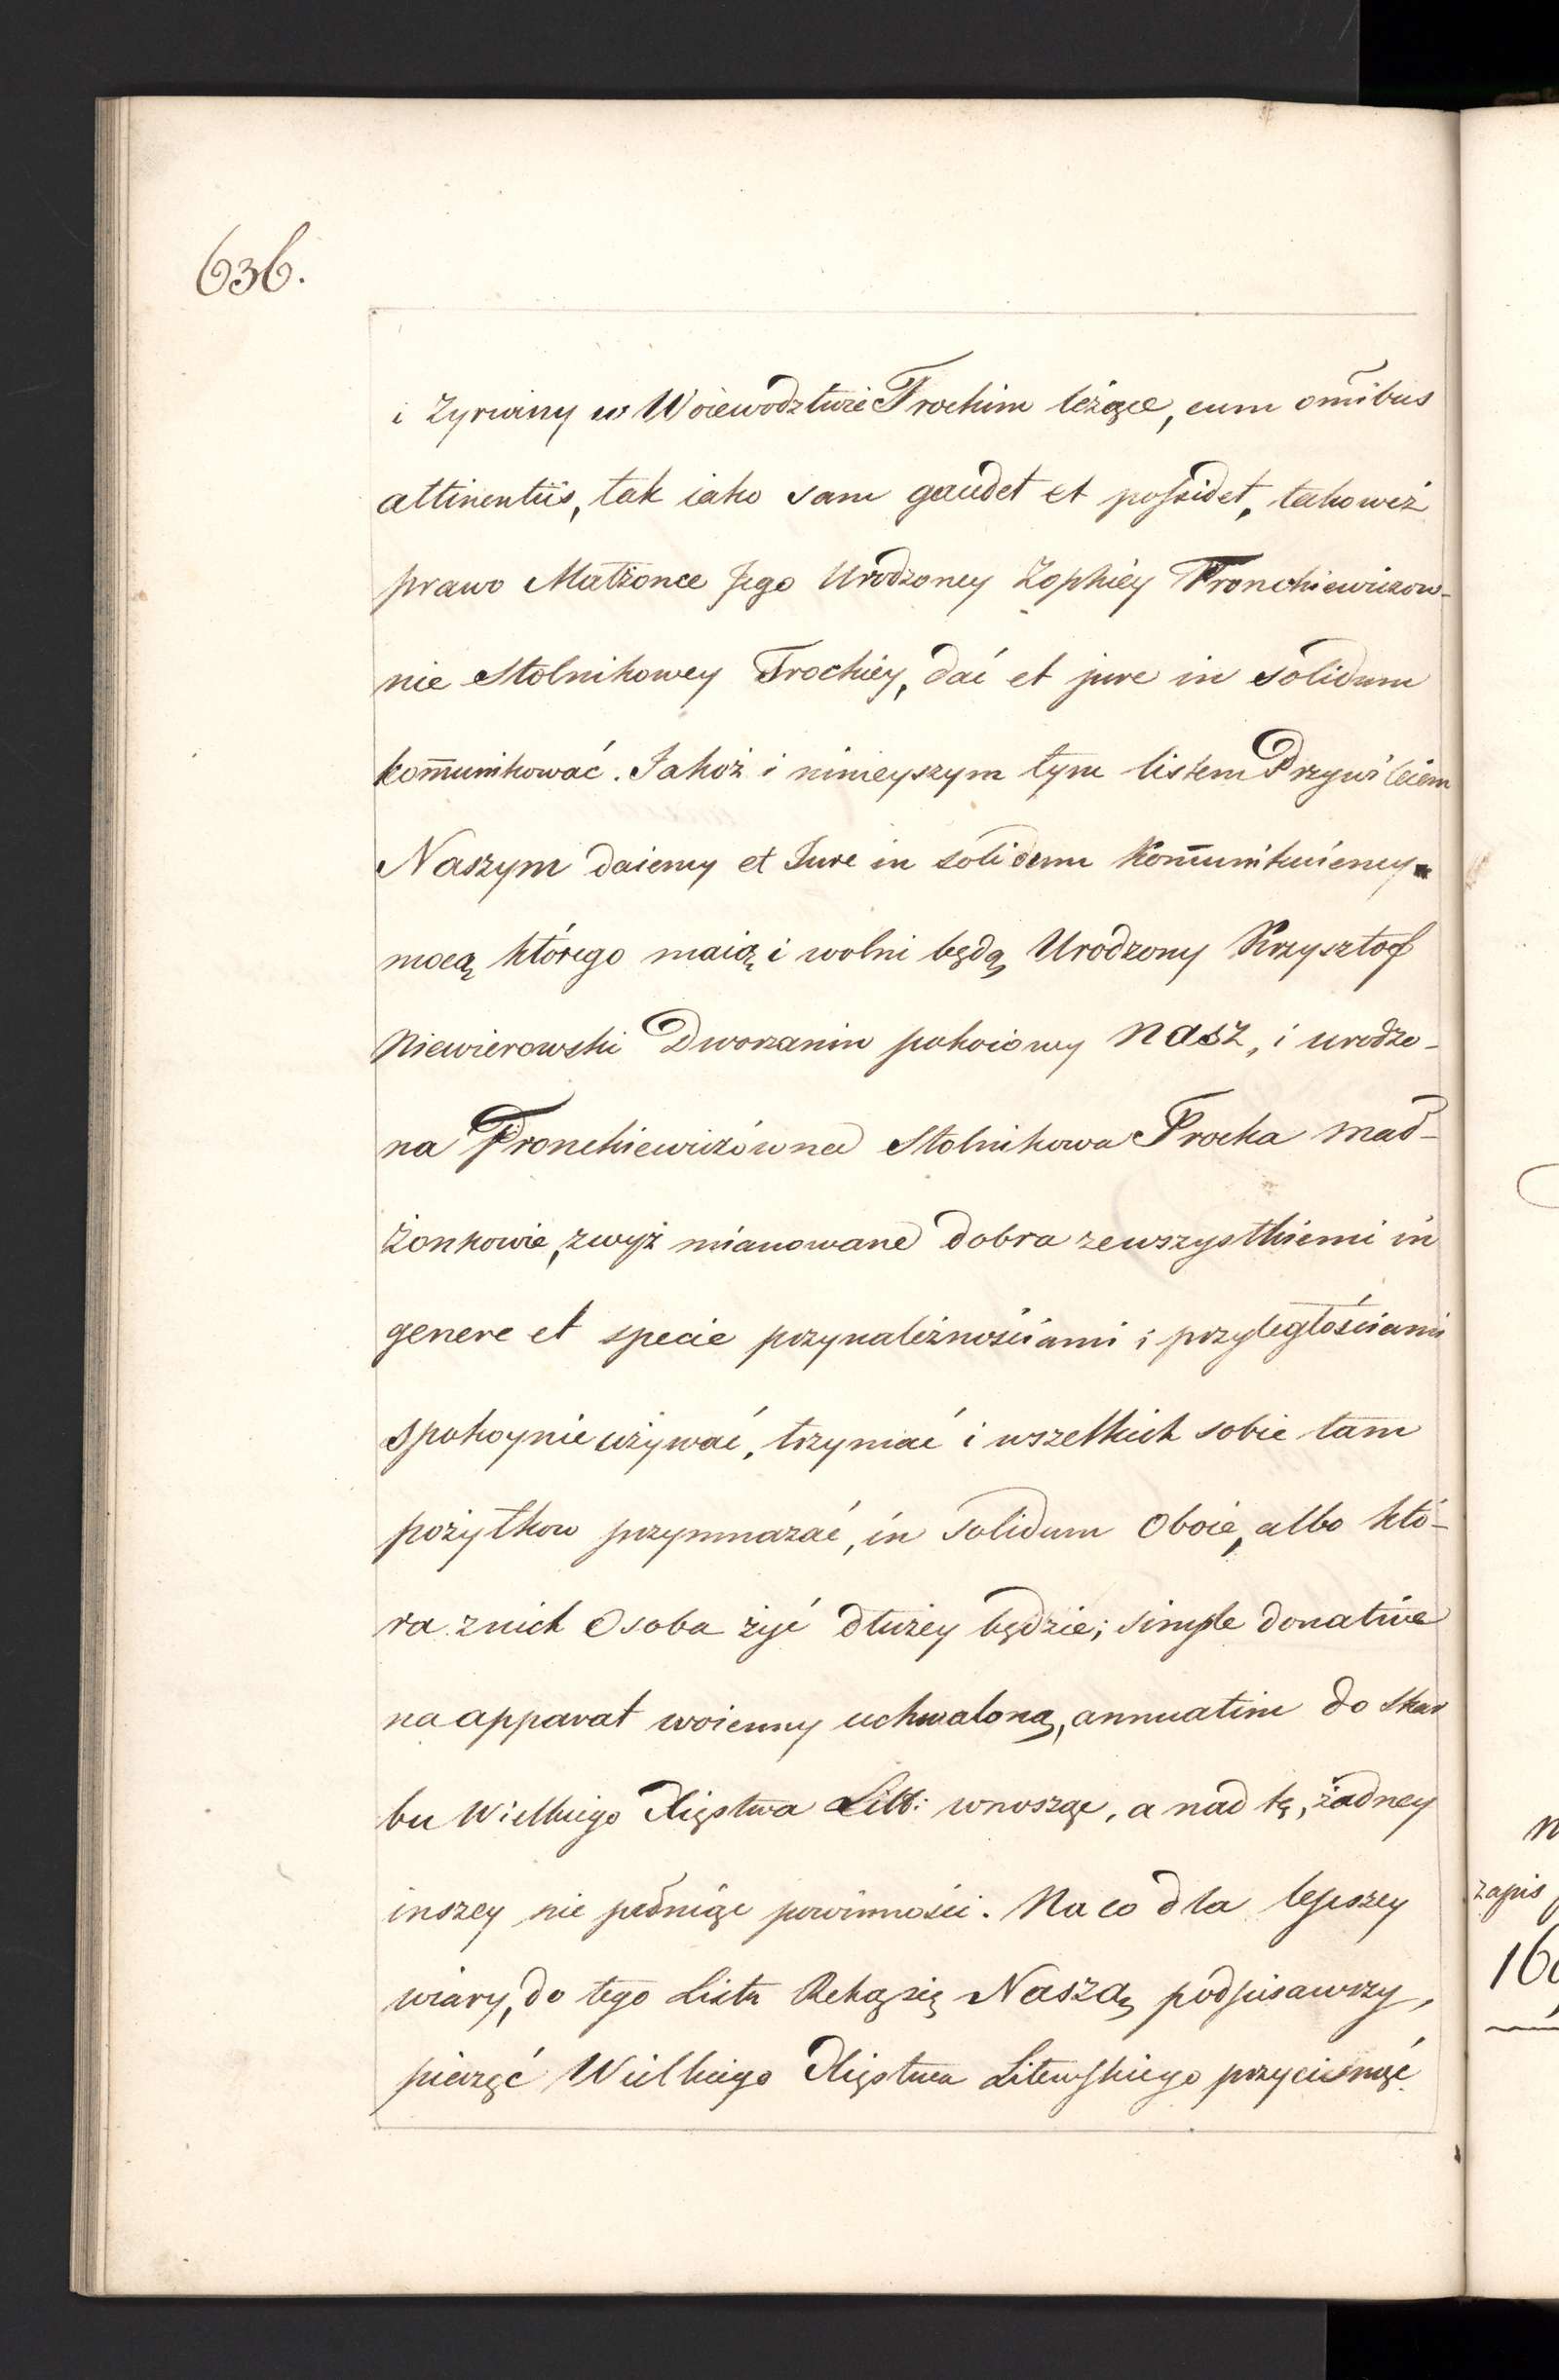 636.
i Zyrwiny w Woiewodztwie Trockim leżące, cum omībus
attinentiis, tak iako sam gaudet et possidet, takoweż
prawo Małżonce Jego Urodzoney Zophiey Fronckiewiczow-
nie Stolnikowey Trockiey, dać et jure in solidum
kom̄unikować. Jakoż i ninieyszym tym listem Przywileiem
Naszym daiemy et Jure in solidum Kom̄unikuiemy.
mocą którego maią i wolni będą Urodzony Krzysztof
Niewierowski Dworzanin pokoiowy Nasz, i urodzo-
na Fronckiewiczówna Stolnikowa Trocka mał-
żonkowie, zwyż mianowane dobra zewszystkiemi in
genere et specie przynależnościami i przyległościami
spokoynie używać, trzymać i wszelkich sobie tam
pożytkow przymnażać, in solidum Oboie, albo któ-
ra znich Osoba żyć dłużey będzie; simple donative
na apparat woienny uchwaloną, annuatim do Skar
bu Wielkiego Xięstwa Litt: wnosząc, a nad tę, żadney
inszey nie pełniąc powinności. Na co dla lepszey
wiary, do tego Listu Ręką się Naszą podpisawszy,
pieczęć Wielkiego Xięstwa Litewskiego przycisnąć
zapis